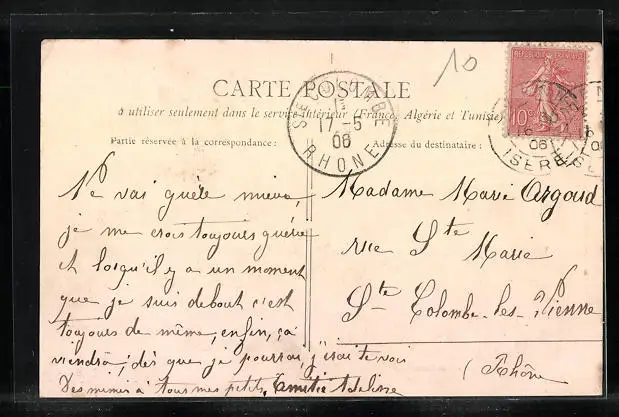 10
CARTE POSTALE
à utiliser seulement dans le service intérieur (France, Algérie et Tunisie)
Partie réservée à la correspondance:
Adresse du destinataire:
Ne vais guère mieux,
je me crois toujours guérie
et lorsqu'il y a un moment
que je suis debout c'est
toujours de même, enfin, ça
viendra; dès que je pourrai, j'irai te voir
Des mimis à tous mes petits, Amitié Adeline
Madame Marie Argoud
rue Ste Marie
Ste Colombe-les-Vienne
(Rhône
STE COLOMBE
17-5
06
RHONE
REPUBLIQUE FRANÇAISE
10c
06
ISERE